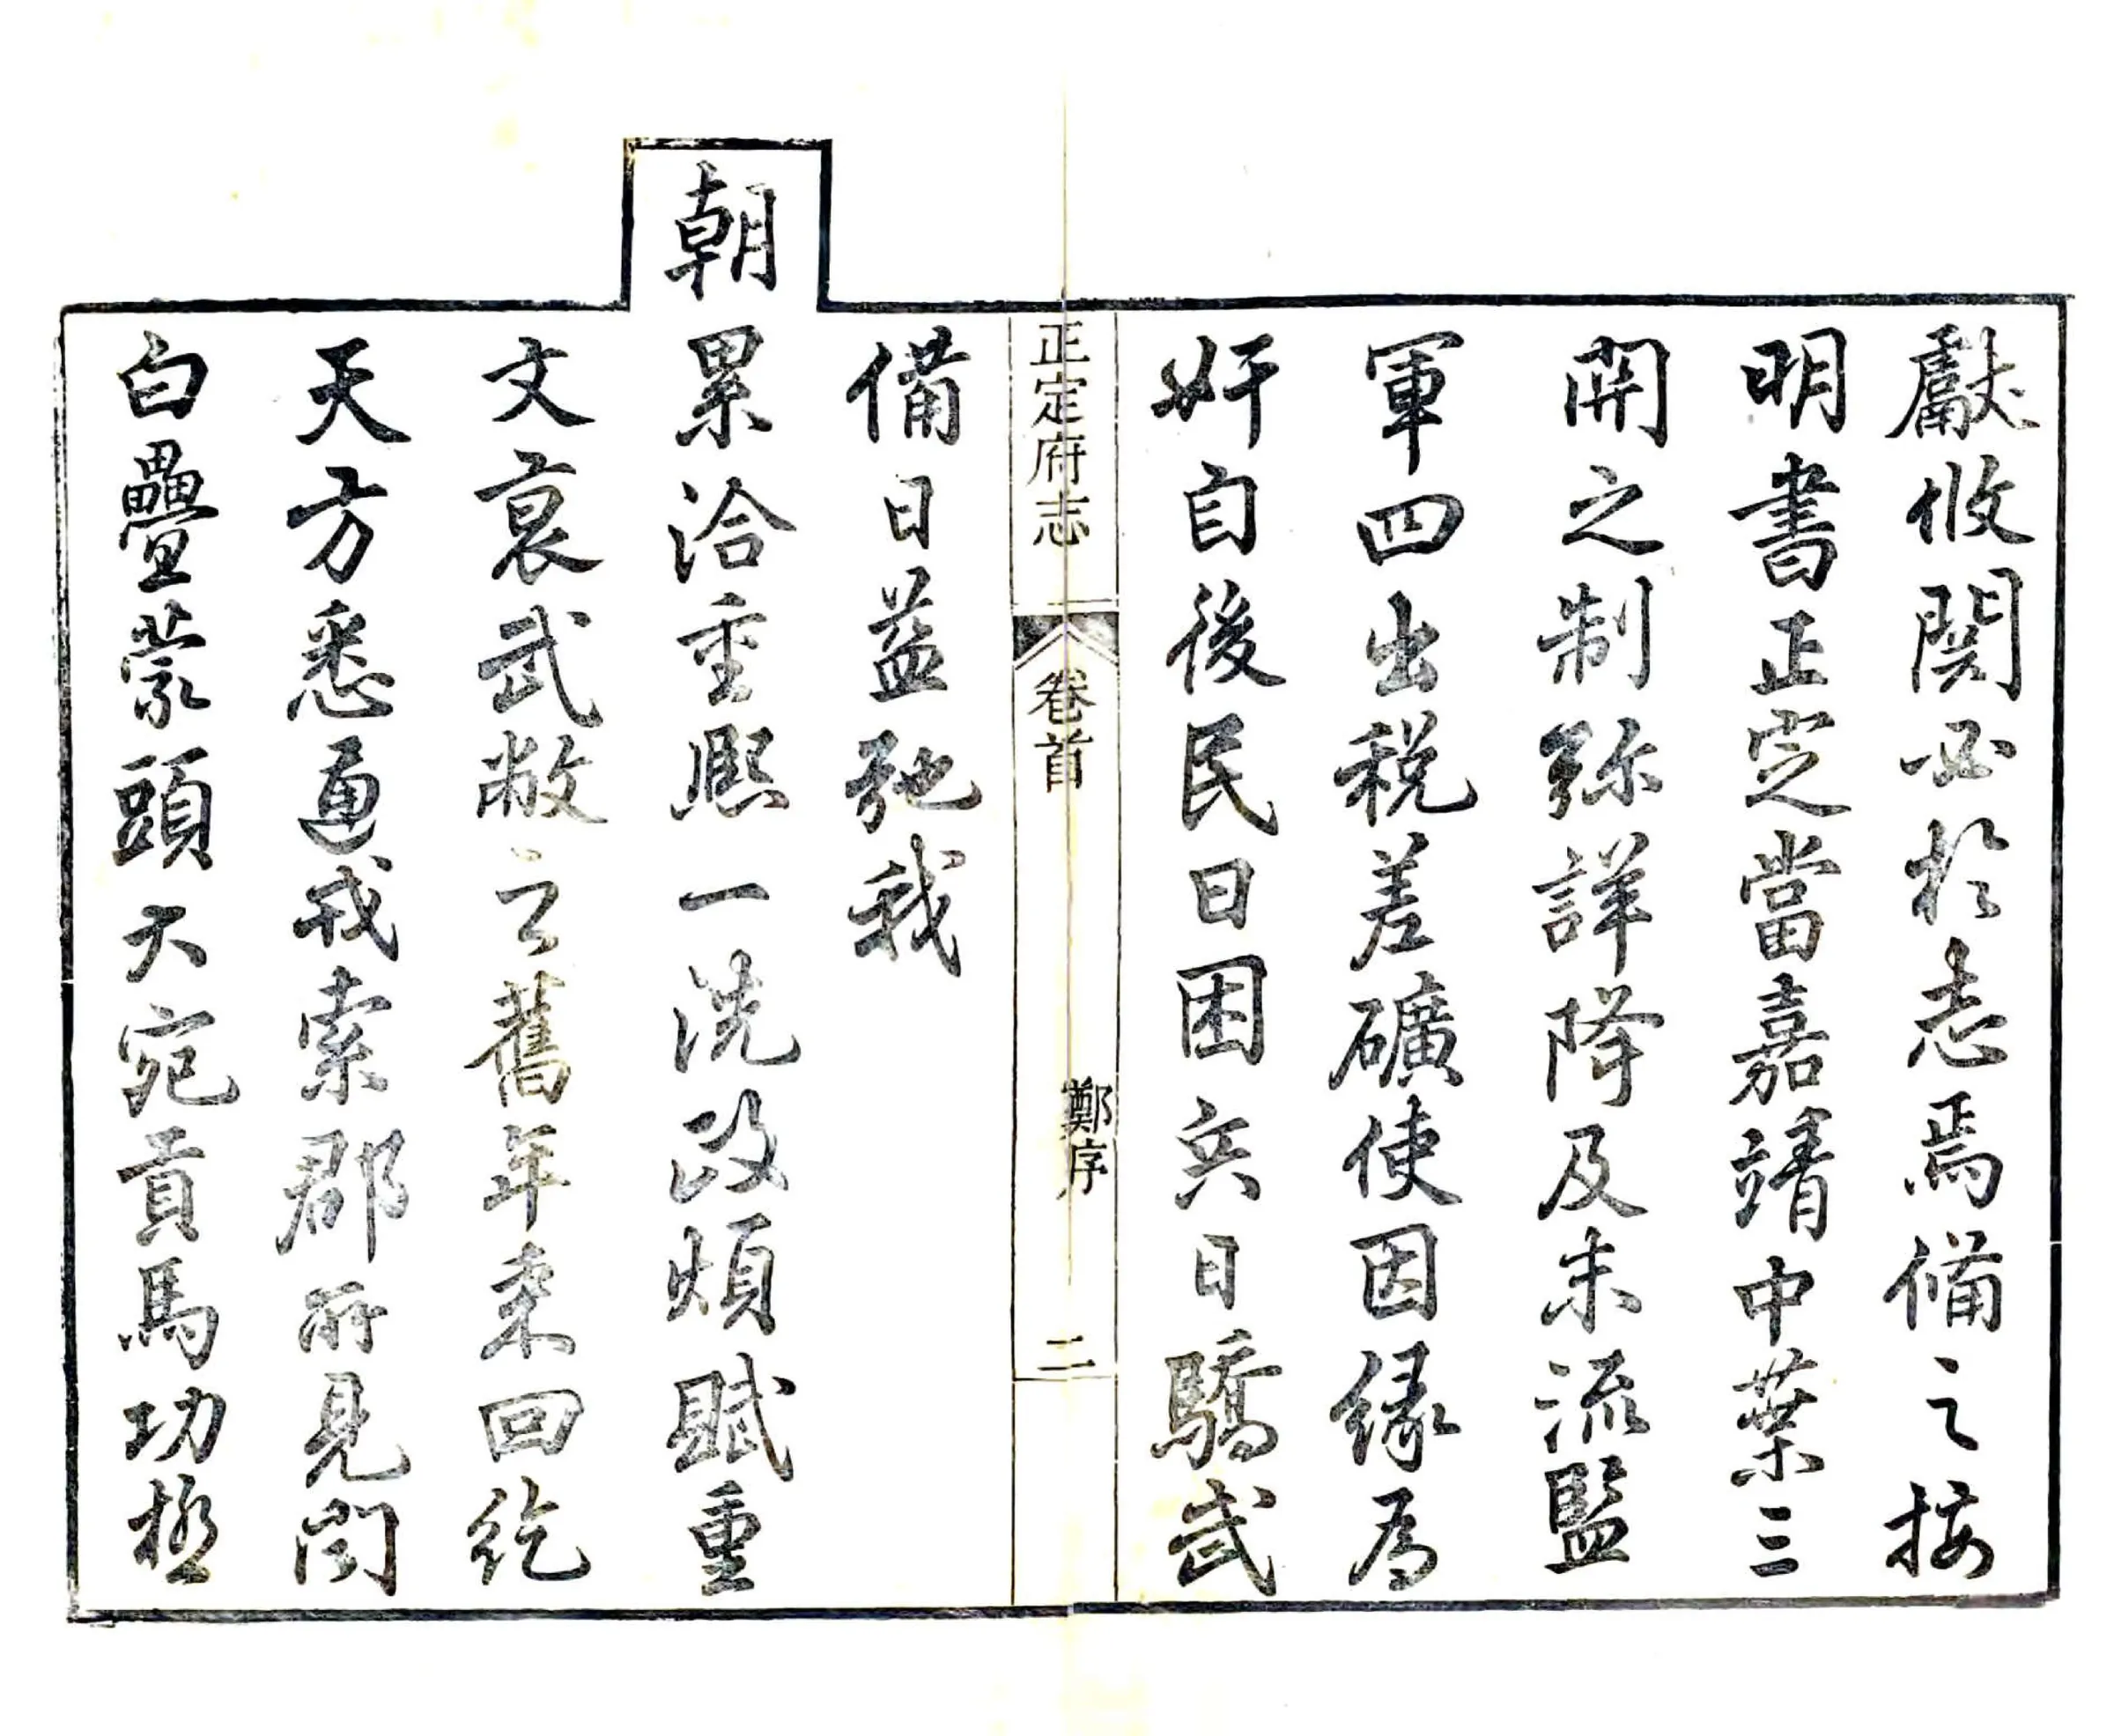 獻攸関必於志焉備之按
明書正定當嘉靖中葉三
関之制弥詳降及末流監
軍四出税差礦使因緣為
奸自後民日困兵日驕武
正定府志 卷首 鄭序 二
備日益弛我
朝累洽重熙一洗政煩賦重
文衰武敝之舊年来回紇
天方悉通戎索郡所見聞
白疊蒙頭大宛貢馬功極